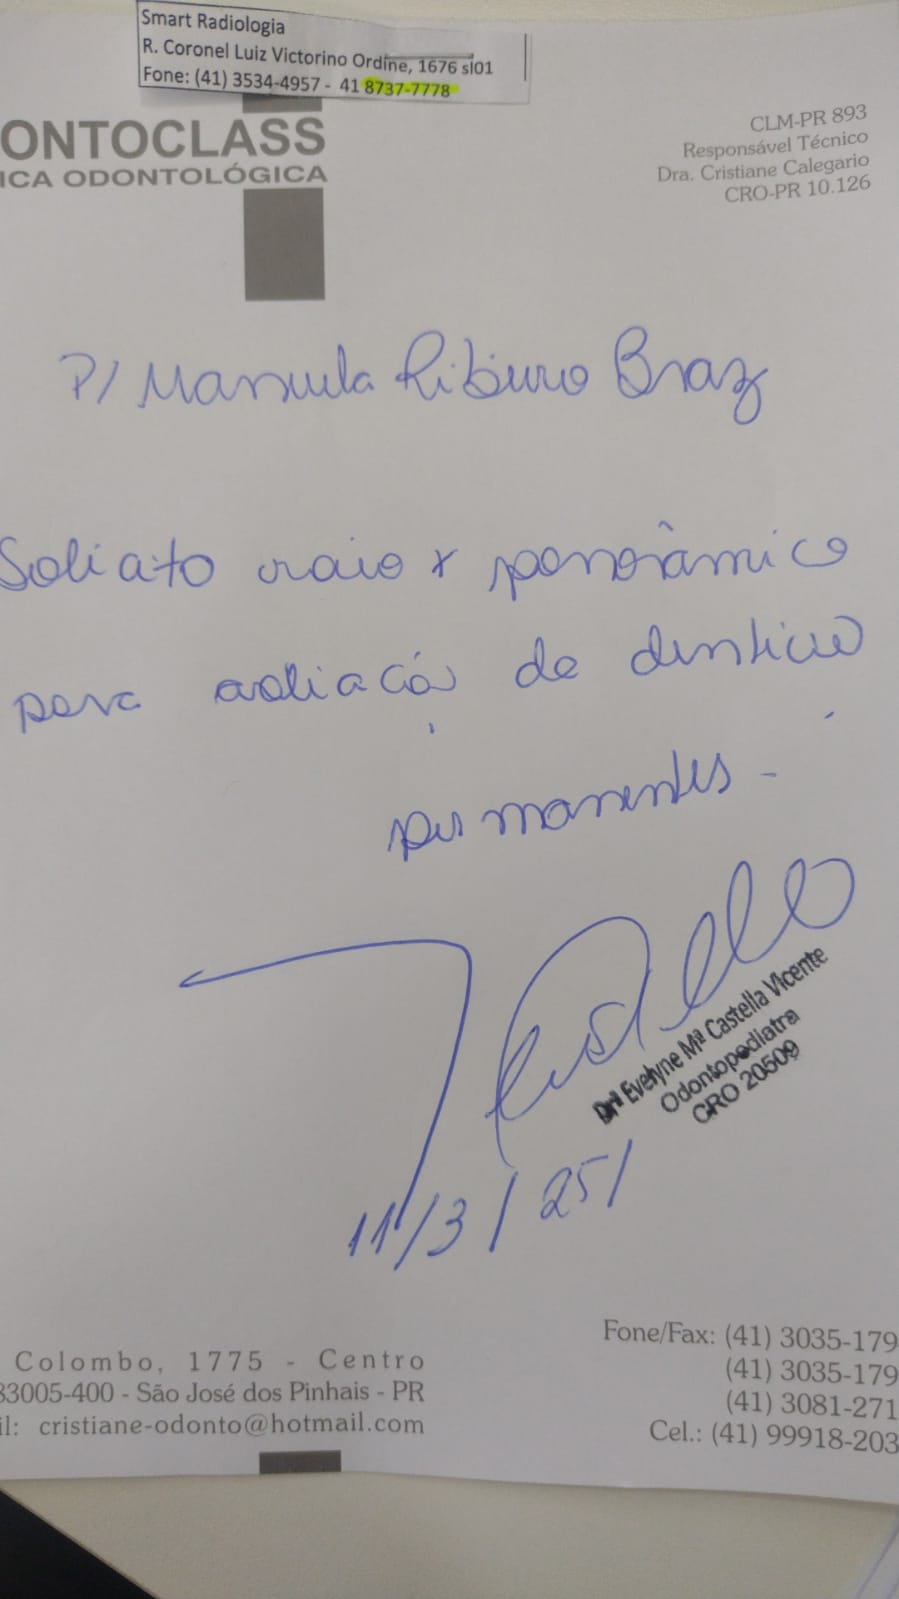 Smart Radiologia
R. Coronel Luiz Victorino Ordine, 1676 sl01
Fone: (41) 3534-4957 - 41 8737-7778
ONTOCLASS
ICA ODONTOLÓGICA
CLM-PR 893
Responsável Técnico
Dra. Cristiane Calegario
CRO-PR 10.126
P/ Manuela Ribeiro Braz
Solicito raio x panorâmico
para avaliação de dentição
permanentes.
Drª Evelyne Mª Castella Vicente
Odontopediatra
CRO 20509
11/3/25/
Colombo, 1775 - Centro
83005-400 - São José dos Pinhais - PR
il: cristiane-odonto@hotmail.com
Fone/Fax: (41) 3035-179
(41) 3035-179
(41) 3081-271
Cel.: (41) 99918-203